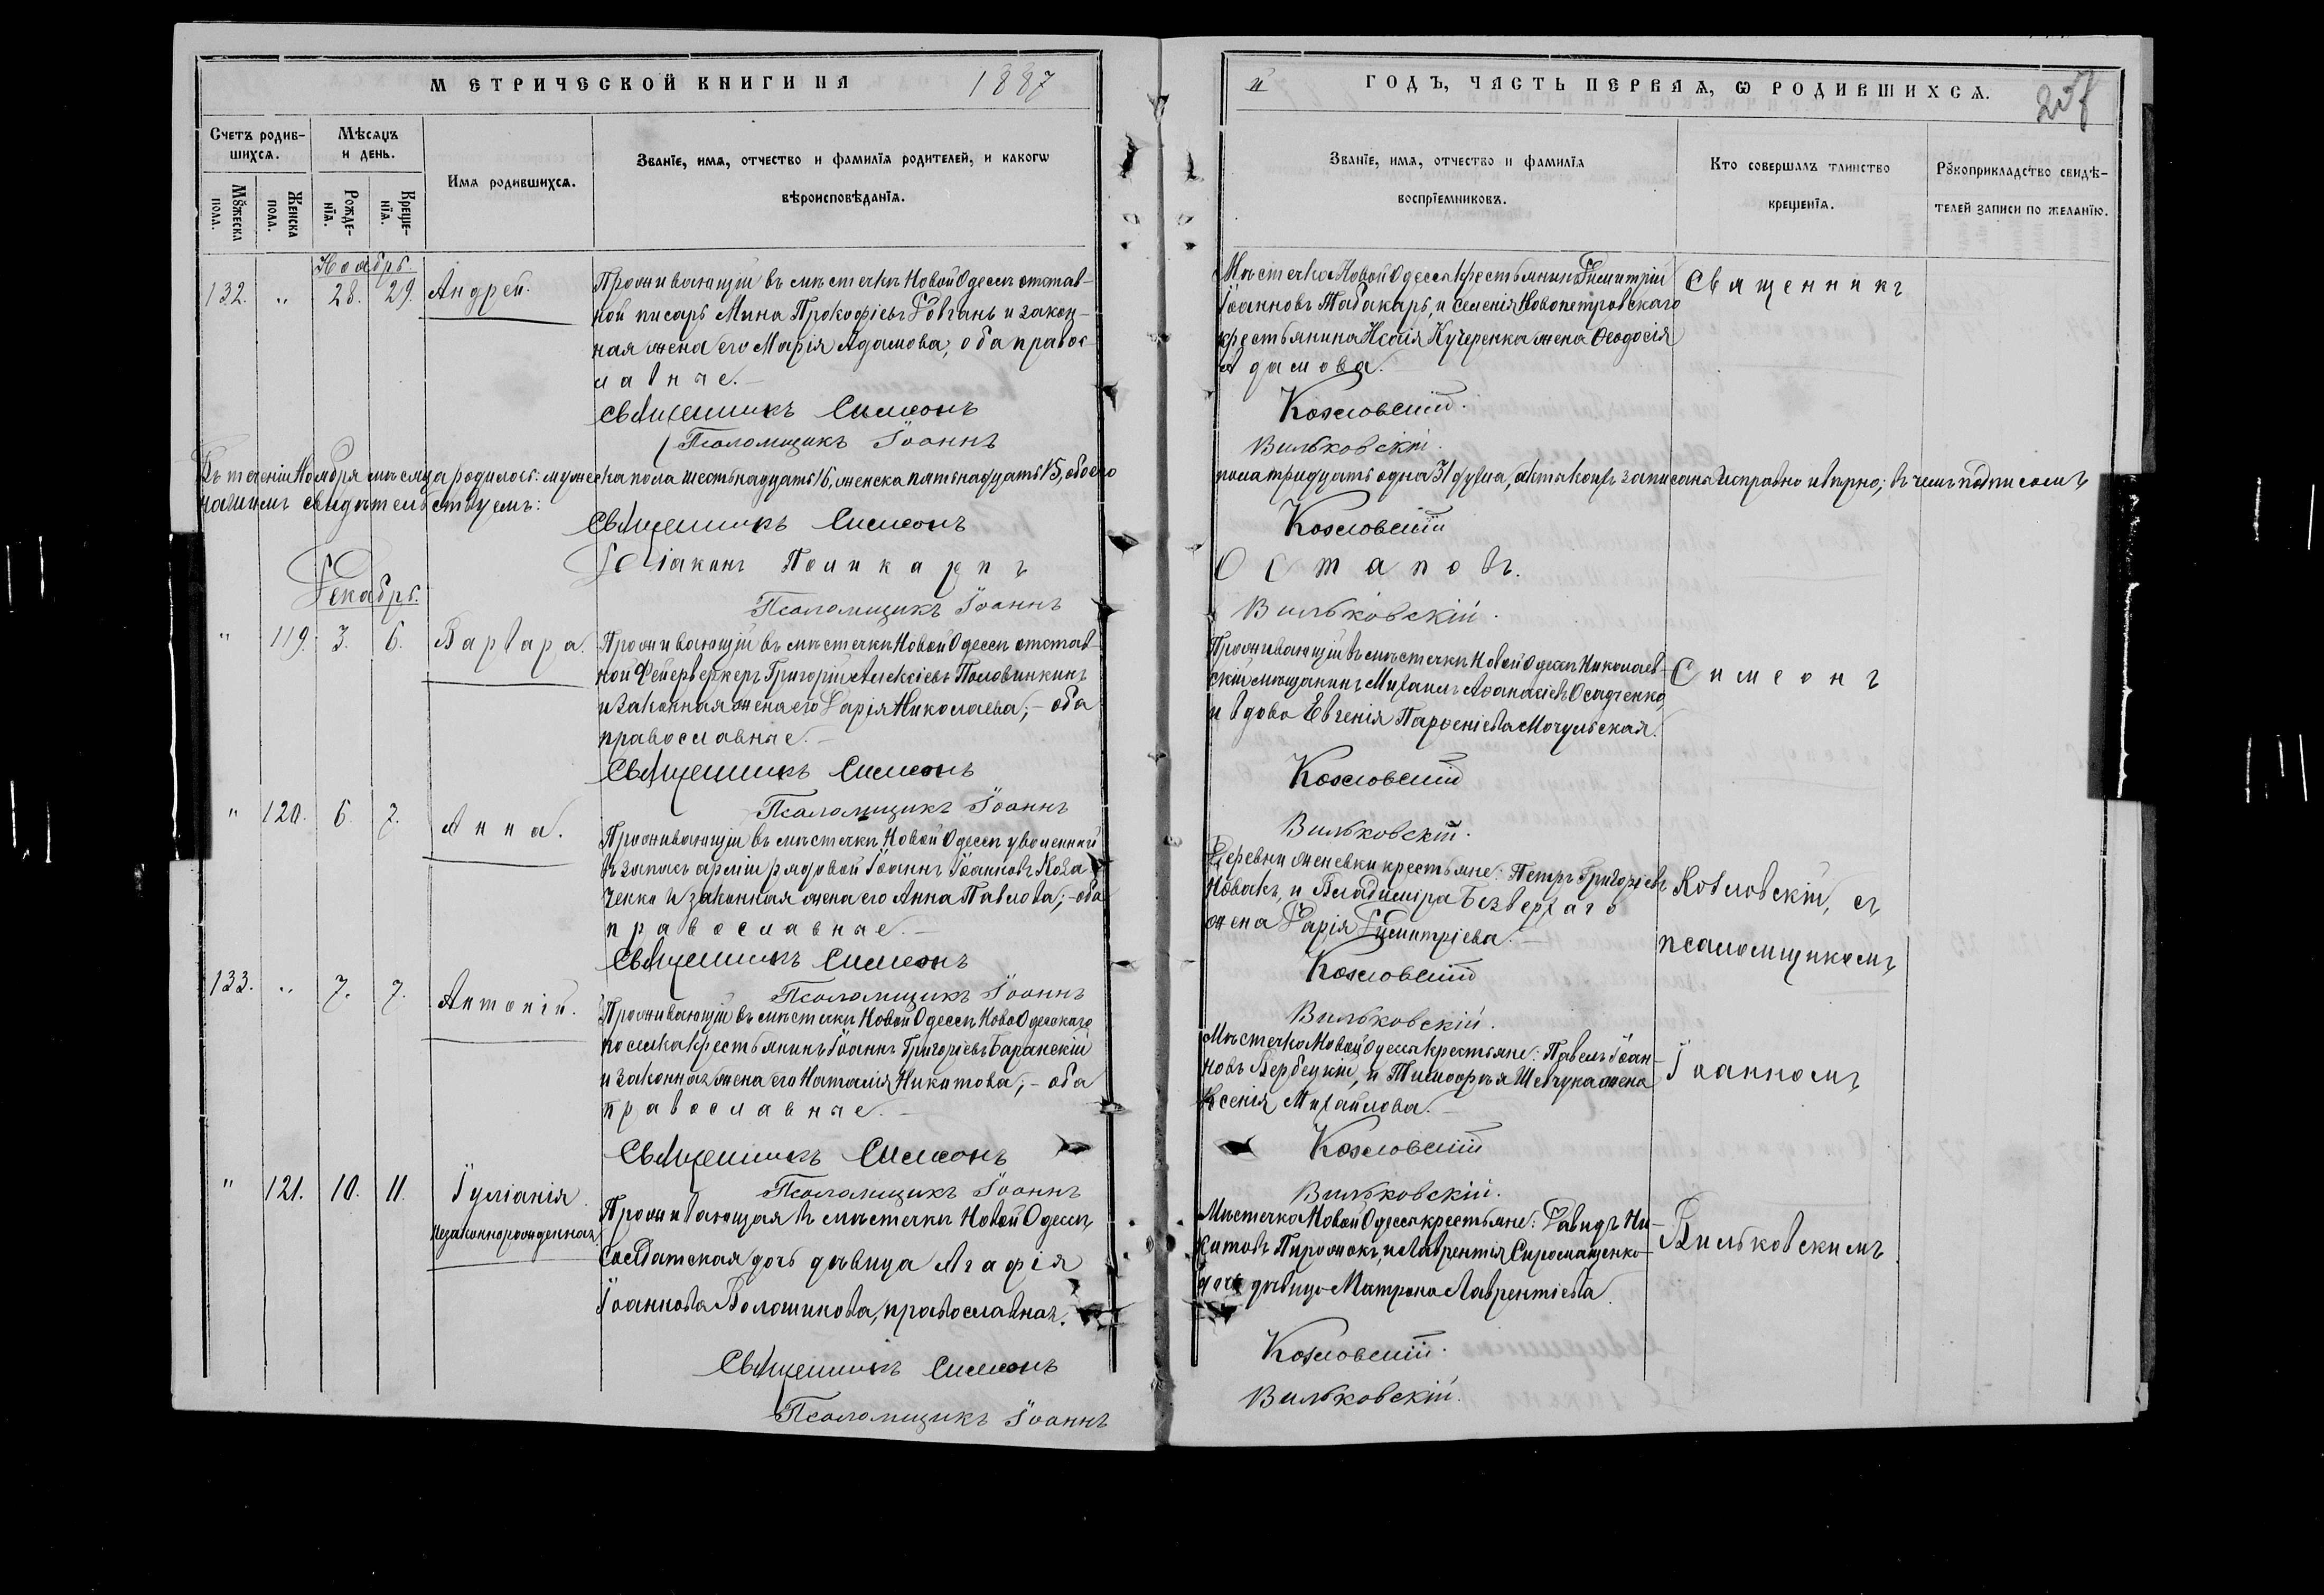 МЕТРИЧЕСКОЙ КНИГИ НА 1887
Счетъ родив-
шихсѧ.
Мѣсѧцъ
и день.
Имѧ родившихсѧ.
Званїе, имѧ, отчество и фамилїѧ родителей, и какогѡ
вѣроисповѣданїѧ.
Мꙋжеска
пола.
Женска
пола.
Рожде-
нїѧ.
Креще-
нїѧ.
Ноябрь.
132. " 28. 29. Андрей.
Проживающій въ мѣстечкѣ Новой Одессѣ отстав-
ной писарь Мина Прокофіевъ Довгань и закон-
ная жена его Марія Адамова, оба правос-
лавные.
Священникъ Симеонъ
Псаломщикъ Іоаннъ
Въ теченіи Ноября мѣсяца родилось: мужеска пола шестьнадцать 16, женска пятьнадцать 15, обоего
свидѣтельствуемъ:
Священникъ Симеонъ
Діаконъ Поликарпъ
Псаломщикъ Іоаннъ
Декабрь.
" 119. 3. 6. Варвара.
Проживающій въ мѣстечкѣ Новой Одессѣ отстав-
ной Фейерверкеръ Григорій Алексіевъ Половинкинъ
и законная жена его Дарія Николаева; - оба
православные.
Священникъ Симеонъ
Псаломщикъ Іоаннъ
" 120. 6. 7. Анна.
Проживающій въ мѣстечкѣ Новой Одессѣ уволенный
въ запасъ арміи рядовой Іоаннъ Іоанновъ Коза
ченко и законная жена его Анна Павлова; - оба
православные.
Священникъ Симеонъ
Псаломщикъ Іоаннъ
133. " 7. 7. Антоній.
Проживающій въ мѣстечкѣ Новой Одессѣ НовоОдесскаго
поселка крестьянинъ Іоаннъ Григоріевъ Баранскій
и законная жена его Наталія Никитова; - оба
православные.
Священникъ Симеонъ
Псаломщикъ Іоаннъ
" 121. 10. 11. Іуліанія
незаконнорожденная.
Проживающая въ мѣстечкѣ Новой Одессѣ,
Солдатская дочь дѣвица Агафія
Іоаннова Волошинова, православная.
Священникъ Симеонъ
Псаломщикъ Іоаннъ
й ГОДЪ, ЧАСТЬ ПЕРВАѦ, Ѡ РОДИВШИХСѦ.
Званїе, имѧ, отчество и фамилїѧ
воспрїемниковъ.
Кто совершалъ таинство
крещенїѧ.
Рꙋкоприкладство свидѣ-
телей записи по желанїю.
Мѣстечка Новой Одессы крестьянинъ Димитрій
Іоанновъ Табакарь, и селенія Новопетровскаго
крестьянина Исаія Кучеренка жена Ѳеодосія
Адамова.
Священникъ
Козловскій.
Вильковскій.
пола тридцать одна 31 душа, актъ коихъ записанъ исправно и вѣрно; въ чемъ подписомъ
Козловскій
Остаповъ.
Вильковскій.
Проживающій въ мѣстечкѣ Новой Одессѣ Николаев-
скій мѣщанинъ Михаилъ Аѳанасіевъ Осадченко,
и вдова Евгенія Парѳеніева Мочульская.
Симеонъ
Козловскій
Вильковскій.
Деревни Женевки крестьяне: Петръ Григоріевъ
Новакъ, и Владиміра Безверхаго
жена Дарія Димитріева.
Козловскій, съ
псаломщикомъ
Козловскій
Вильковскій.
Мѣстечка Новой Одессы крестьяне: Павелъ Іоан-
новъ Вербецкій, и Тимоѳея Шевчука жена
Ксенія Михайлова.
Іоанномъ
Козловскій
Вильковскій.
Мѣстечка Новой Одессы крестьяне: Давидъ Ни-
китовъ Пирожокъ, и Лаврентія Сиромащенко
дочь дѣвица Матрона Лаврентіева.
Вильковскимъ
Козловскій.
Вильковскій.